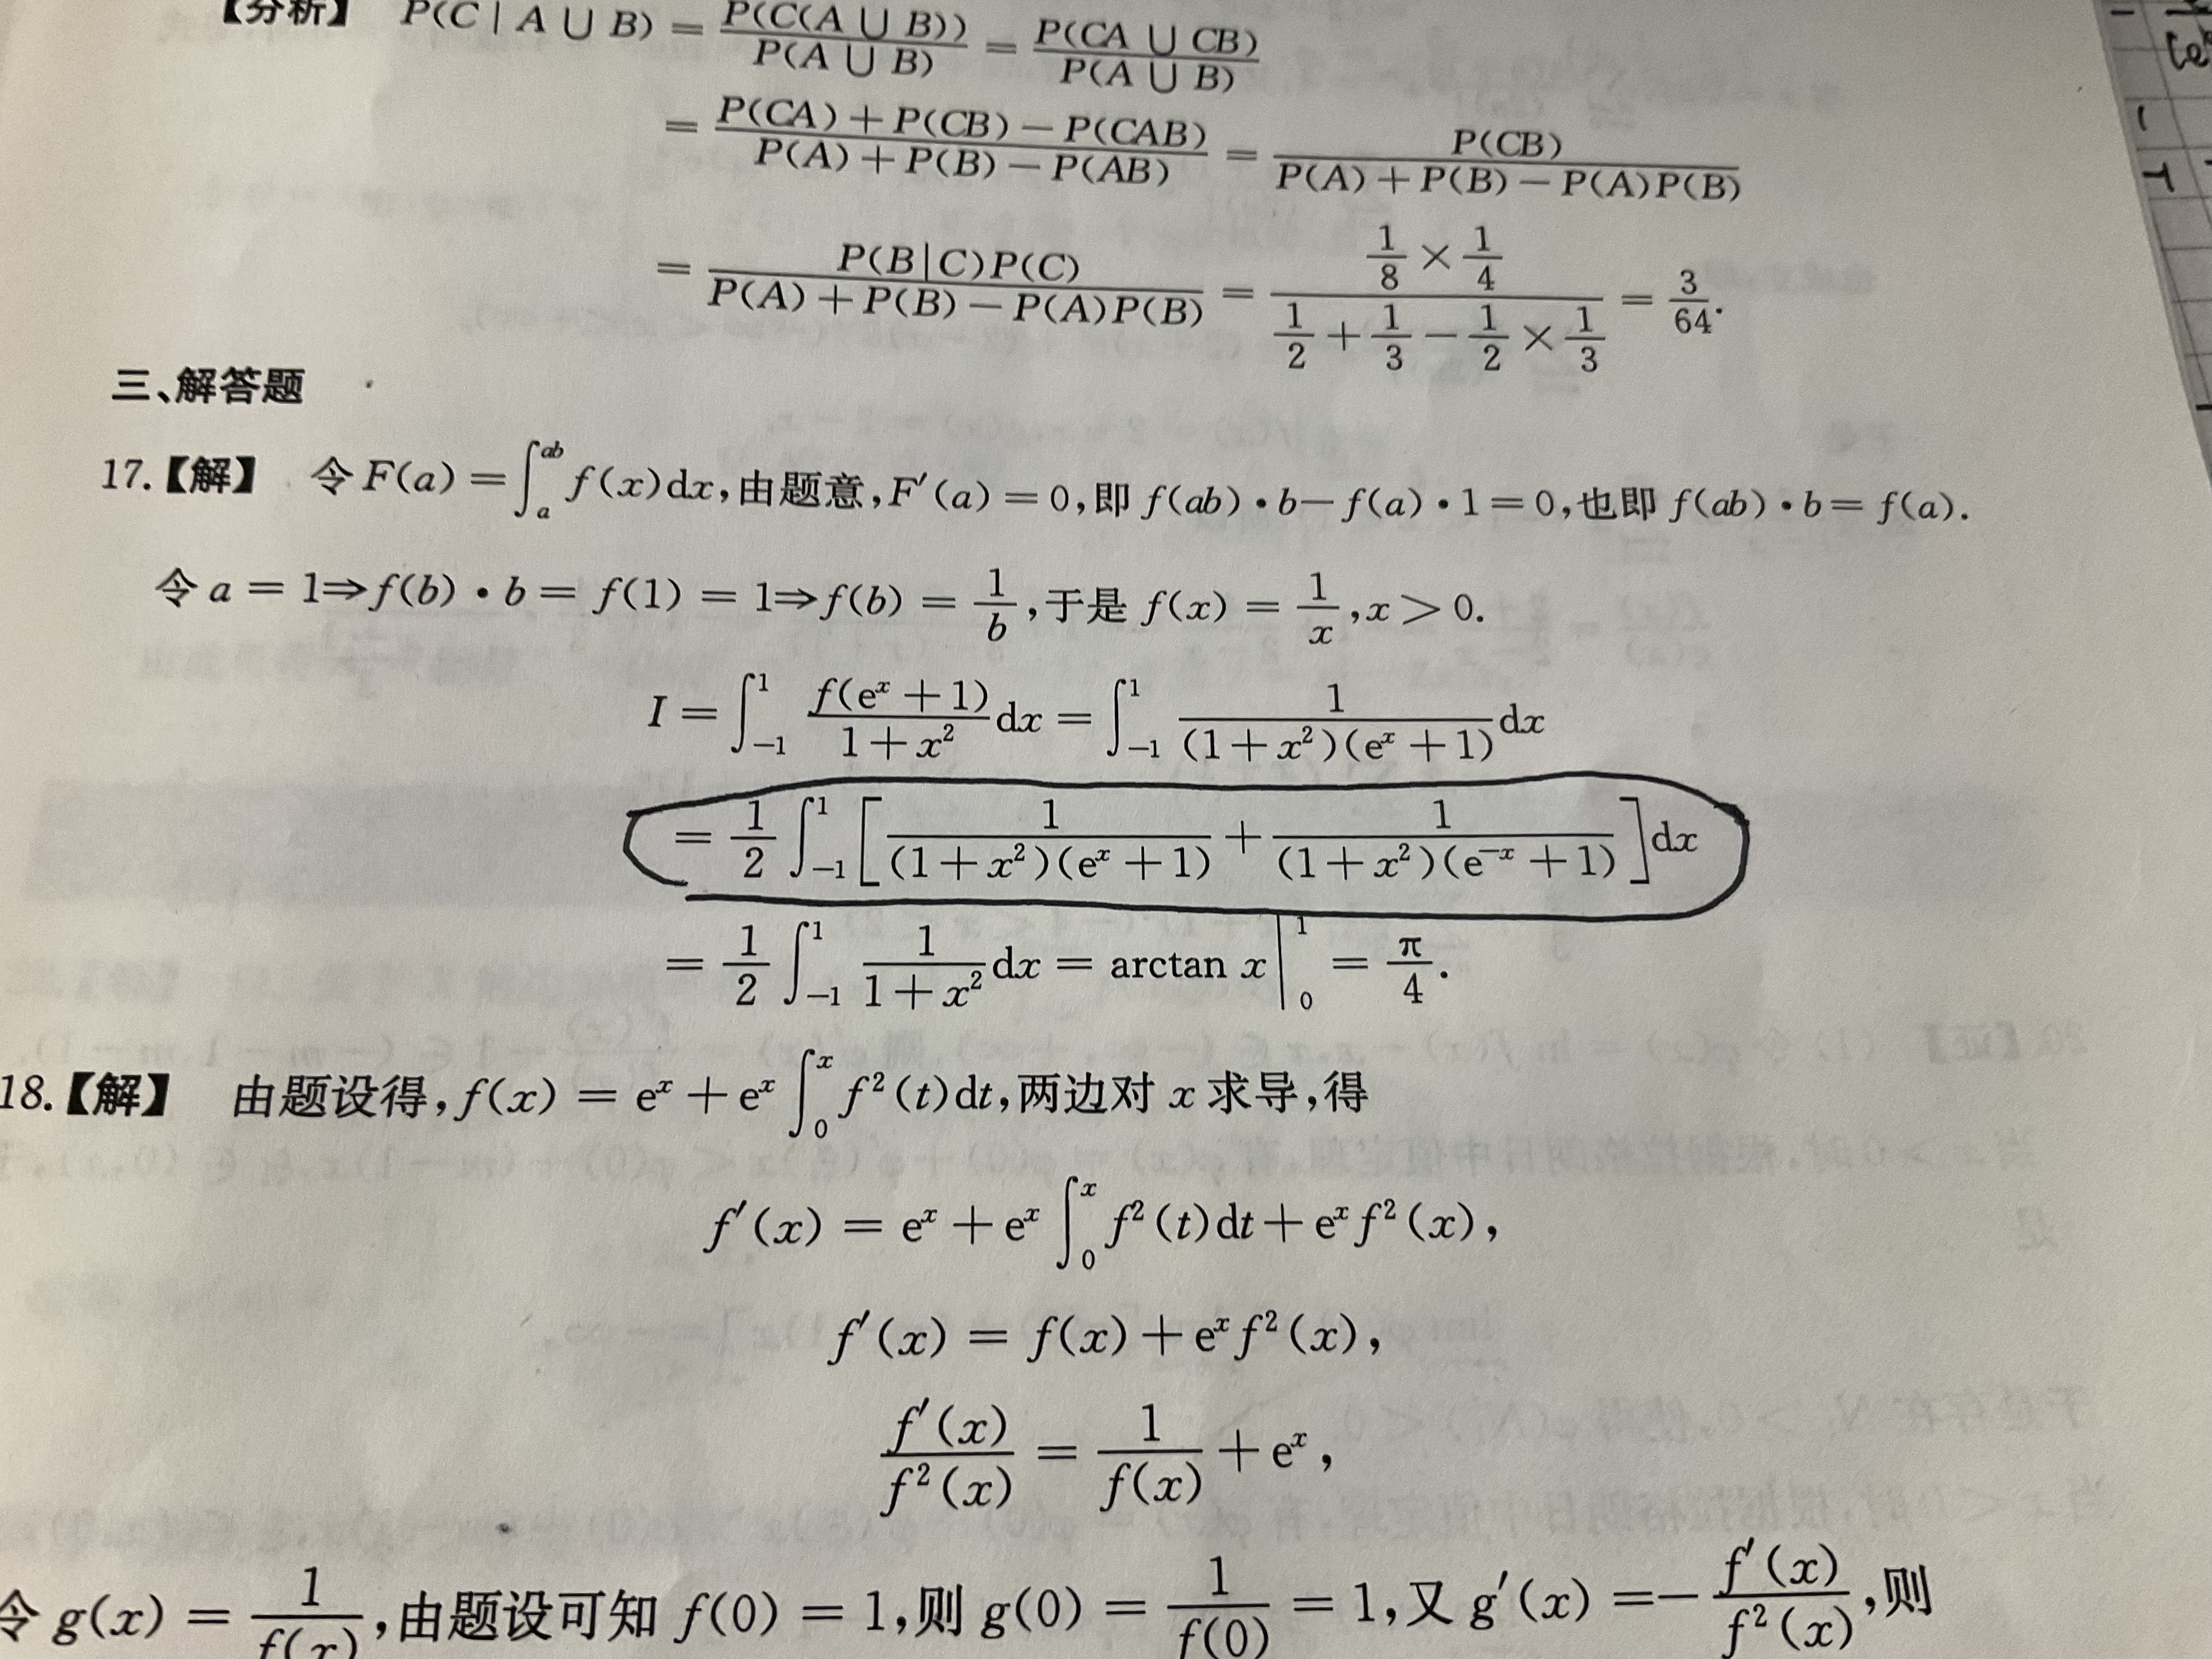 【分析】 P(C | A ∪ B) = P(C(A ∪ B))/P(A ∪ B) = P(CA ∪ CB)/P(A ∪ B)
= (P(CA) + P(CB) − P(CAB))/(P(A) + P(B) − P(AB)) = P(CB)/(P(A) + P(B) − P(A)P(B))
= P(B|C)P(C)/(P(A) + P(B) − P(A)P(B)) = (1/8 × 1/4)/(1/2 + 1/3 − 1/2 × 1/3) = 3/64.
三、解答题
17.【解】 令 F(a) = ∫_a^{ab} f(x)dx,由题意,F′(a) = 0,即 f(ab)•b − f(a)•1 = 0,也即 f(ab)•b = f(a).
令 a = 1⇒f(b)•b = f(1) = 1⇒f(b) = 1/b,于是 f(x) = 1/x,x > 0.
I = ∫_{−1}^{1} f(e^x + 1)/(1 + x²) dx = ∫_{−1}^{1} 1/((1 + x²)(e^x + 1)) dx
= 1/2 ∫_{−1}^{1} [1/((1 + x²)(e^x + 1)) + 1/((1 + x²)(e^{−x} + 1))]dx
= 1/2 ∫_{−1}^{1} 1/(1 + x²) dx = arctan x |_0^1 = π/4.
18.【解】 由题设得,f(x) = e^x + e^x ∫_0^x f²(t)dt,两边对 x 求导,得
f′(x) = e^x + e^x ∫_0^x f²(t)dt + e^x f²(x),
f′(x) = f(x) + e^x f²(x),
f′(x)/f²(x) = 1/f(x) + e^x,
令 g(x) = 1/f(x),由题设可知 f(0) = 1,则 g(0) = 1/f(0) = 1,又 g′(x) = − f′(x)/f²(x),则